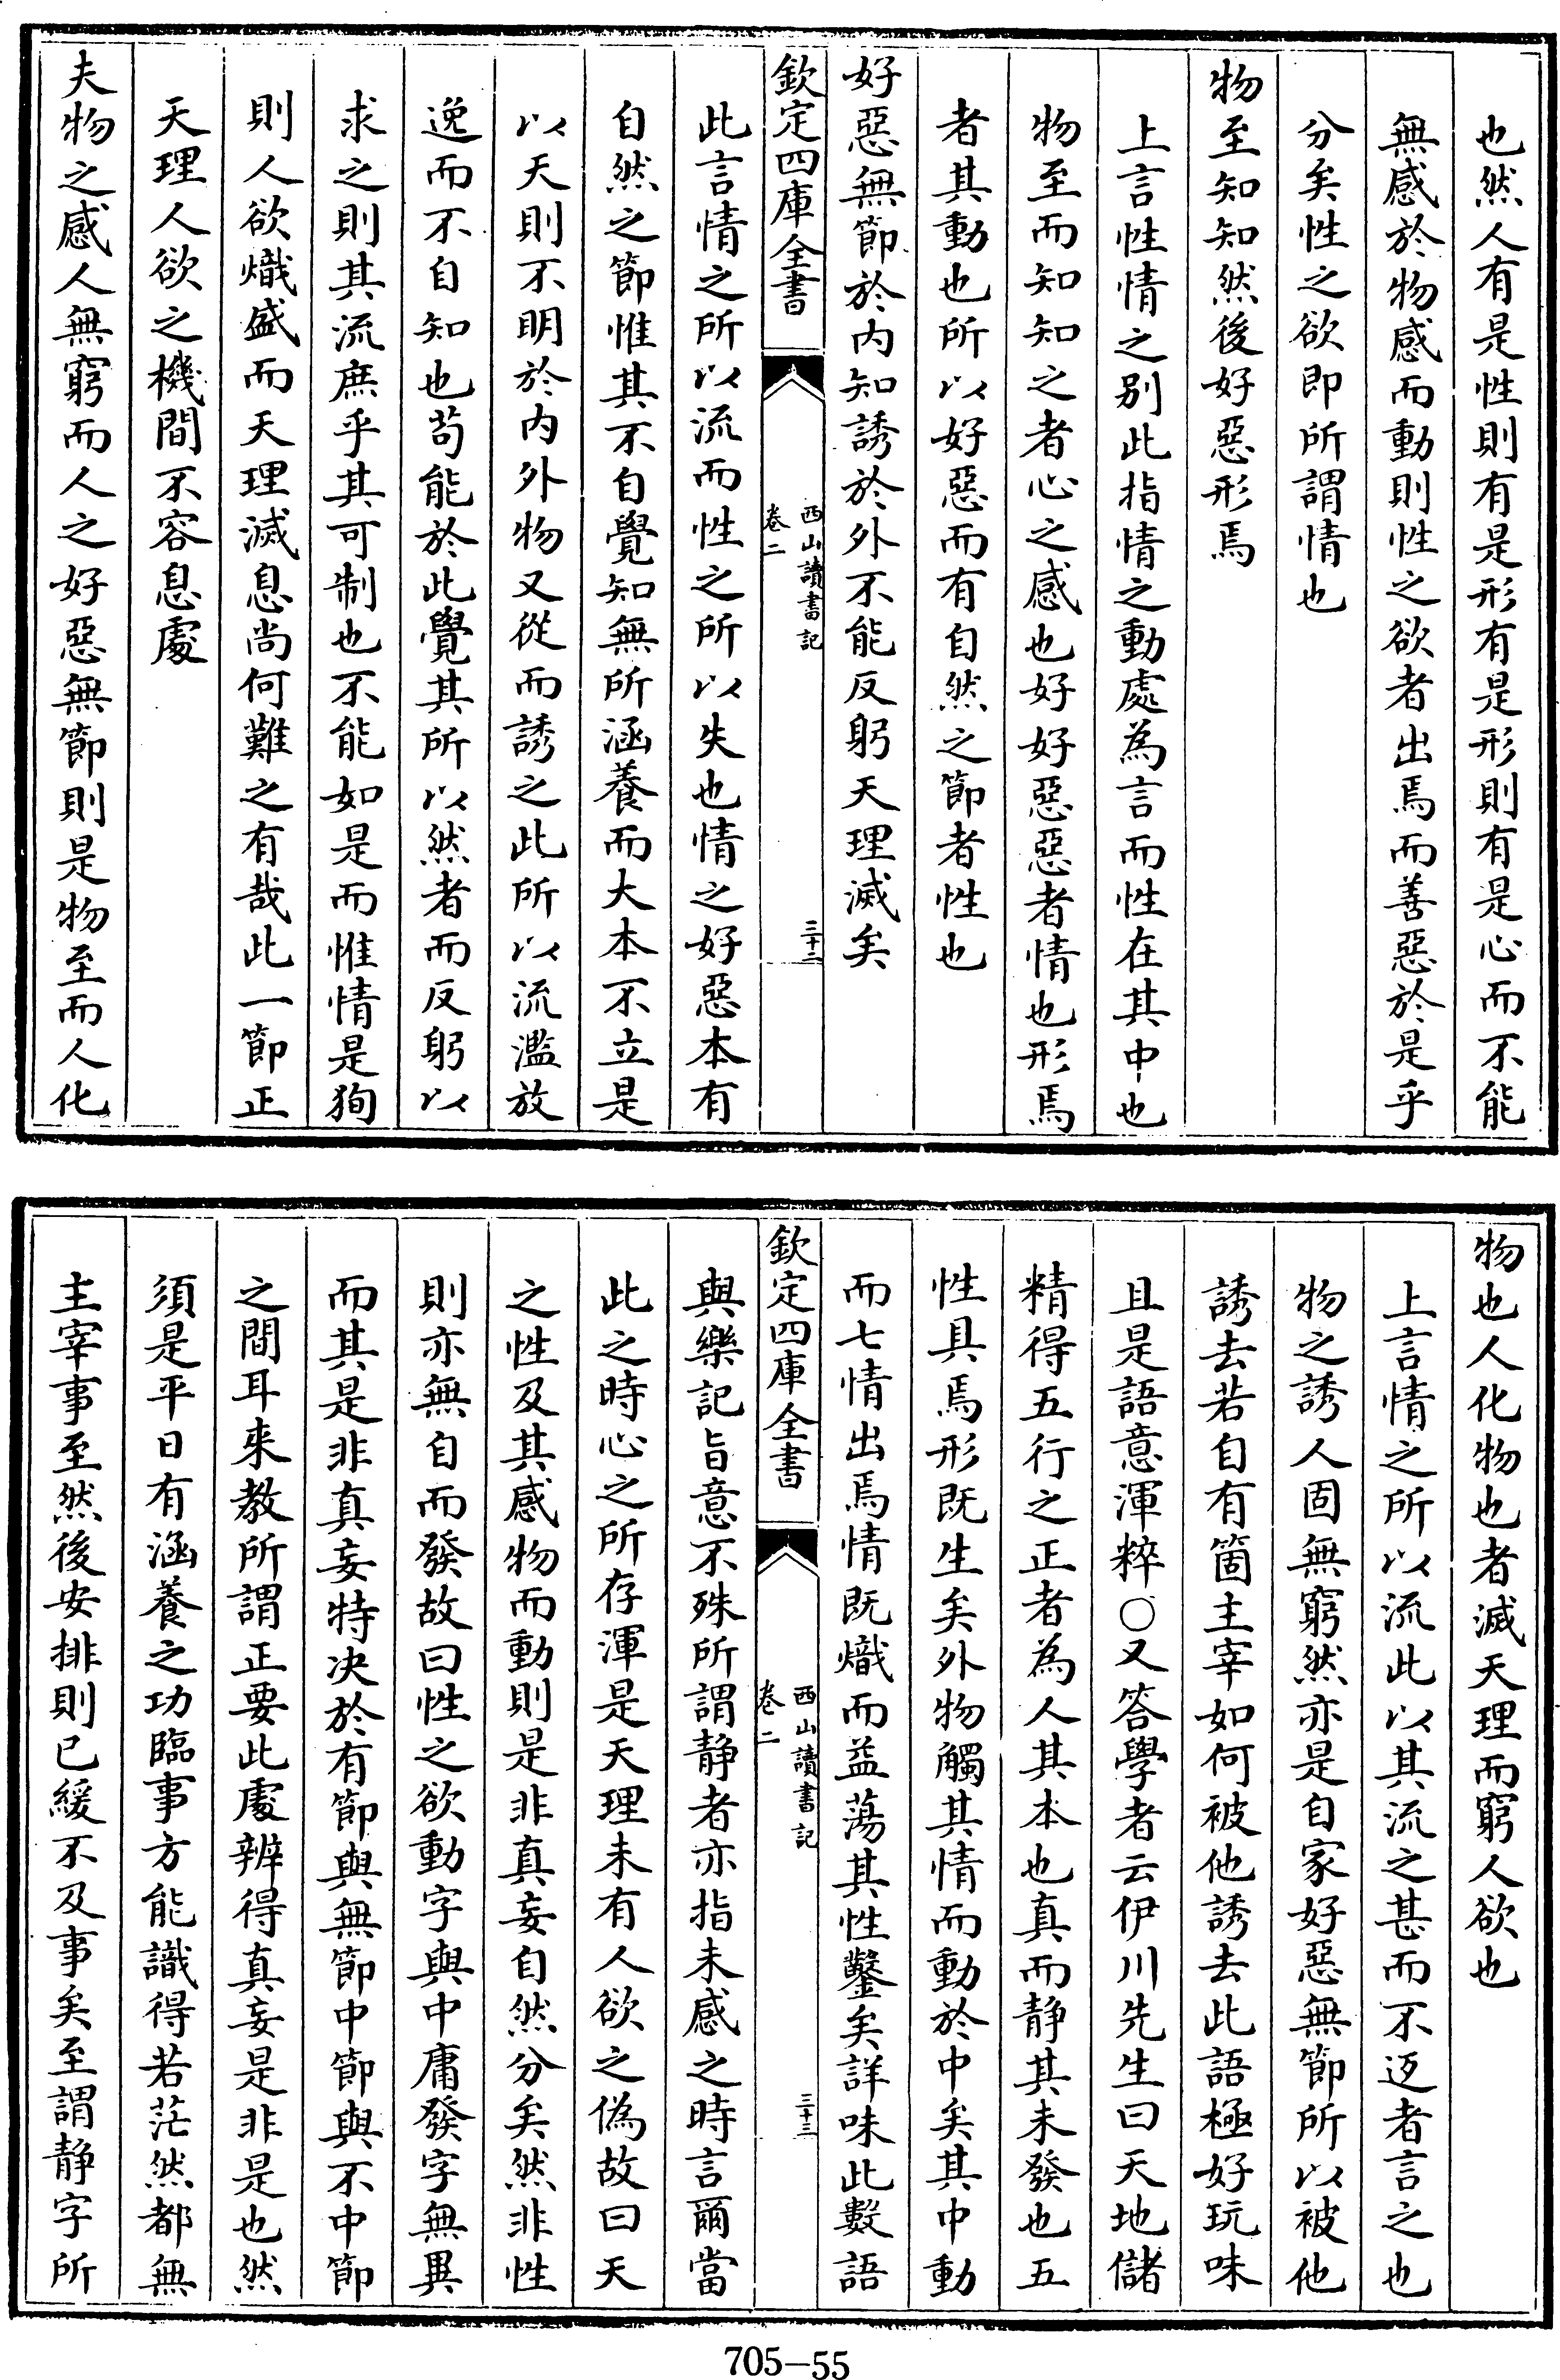 也然人有是性則有是形有是形則有是心而不能
無感於物感而動則性之欲者出焉而善惡於是乎
分矣性之欲即所謂情也
物至知知然後好惡形焉
上言性情之别此指情之動處為言而性在其中也
物至而知知之者心之感也好好惡惡者情也形焉
者其動也所以好惡而有自然之節者性也
好惡無節於内知誘於外不能反躬天理滅矣
欽定四庫全書
西山讀書記
卷二
三十二
此言情之所以流而性之所以失也情之好惡本有
自然之節惟其不自覺知無所涵養而大本不立是
以天則不明於内外物又從而誘之此所以流濫放
逸而不自知也苟能於此覺其所以然者而反躬以
求之則其流庶乎其可制也不能如是而惟情是狥
則人欲熾盛而天理滅息尚何難之有哉此一節正
天理人欲之機間不容息處
夫物之感人無窮而人之好惡無節則是物至而人化
物也人化物也者滅天理而窮人欲也
上言情之所以流此以其流之甚而不返者言之也
物之誘人固無窮然亦是自家好惡無節所以被他
誘去若自有箇主宰如何被他誘去此語極好玩味
且是語意渾粹○又答學者云伊川先生曰天地儲
精得五行之正者為人其本也真而静其未發也五
性具焉形既生矣外物觸其情而動於中矣其中動
而七情出焉情既熾而益蕩其性鑿矣詳味此數語
欽定四庫全書
西山讀書記
卷二
三十三
與樂記旨意不殊所謂静者亦指未感之時言爾當
此之時心之所存渾是天理未有人欲之偽故曰天
之性及其感物而動則是非真妄自然分矣然非性
則亦無自而發故曰性之欲動字與中庸發字無異
而其是非真妄特决於有節與無節中節與不中節
之間耳來教所謂正要此處辨得真妄是非是也然
須是平日有涵養之功臨事方能識得若茫然都無
主宰事至然後安排則已緩不及事矣至謂静字所
705-55